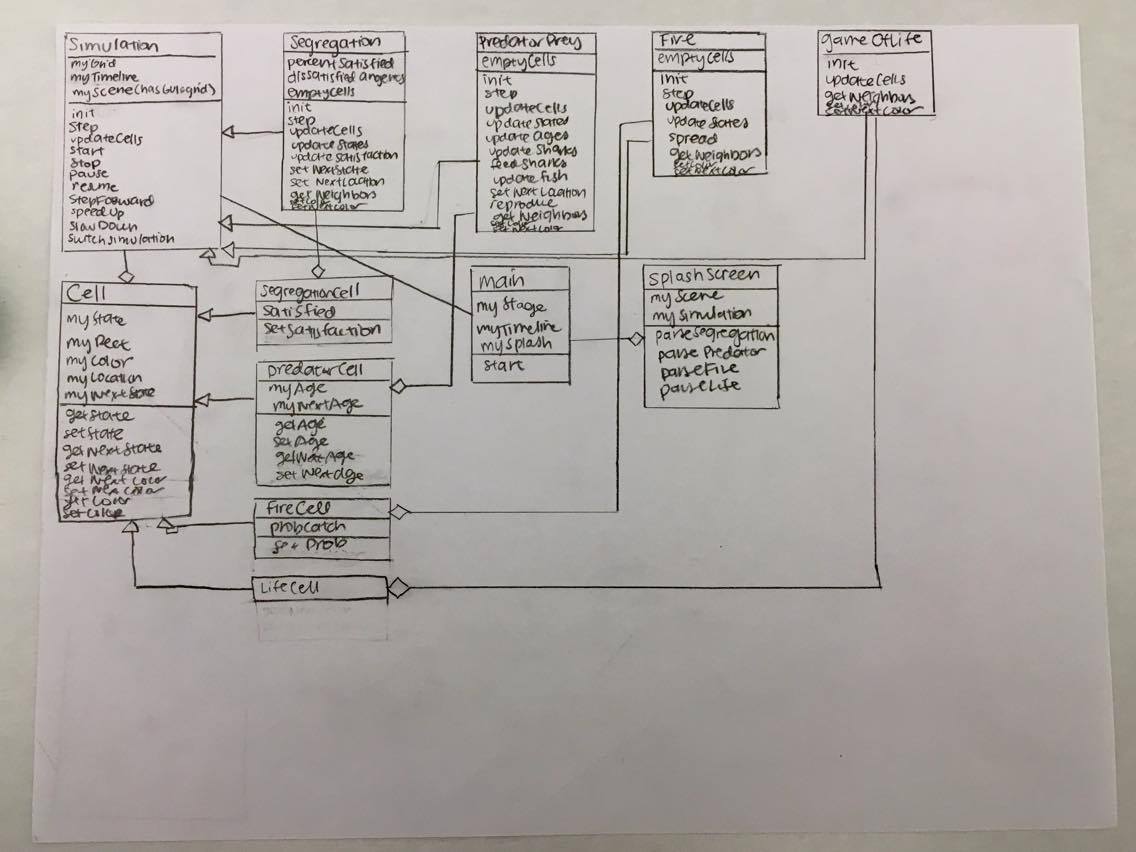 Simulation
myGrid
myTimeline
myScene(hasGui+grid)
init
Step
updateCells
start
Stop
pause
resume
StepForward
speedUp
SlowDown
Switch simulation
Segregation
percentSatisfied
emptyCells
init
step
updateCells
update States
update satisfaction
set NextState
set NextLocation
get Neighbors
setColor
setNextColor
Predator Prey
emptyCells
init
step
updateCells
update States
update Ages
update Sharks
feedSharks
update Fish
set Next Location
reproduce
get Neighbors
setColor
setNextColor
Fire
emptyCells
init
step
updateCells
update States
spread
get Neighbors
setColor
setNextColor
gameOfLife
init
updateCells
getNeighbors
setNextColor
Cell
myState
my Color
myLocation
myNextState
getState
setState
getNextState
set NextState
get Next Color
set Next Color
get Color
setColor
SegregationCell
Satisfied
setSatisfaction
predatorCell
myAge
myNextAge
getAge
setAge
getNextAge
set NextAge
fireCell
probcatch
set Prob
LifeCell
main
my Stage
myTimeline
mySplash
start
SplashScreen
my Scene
my Simulation
parseSegregation
parse Predator
parseFire
parseLife